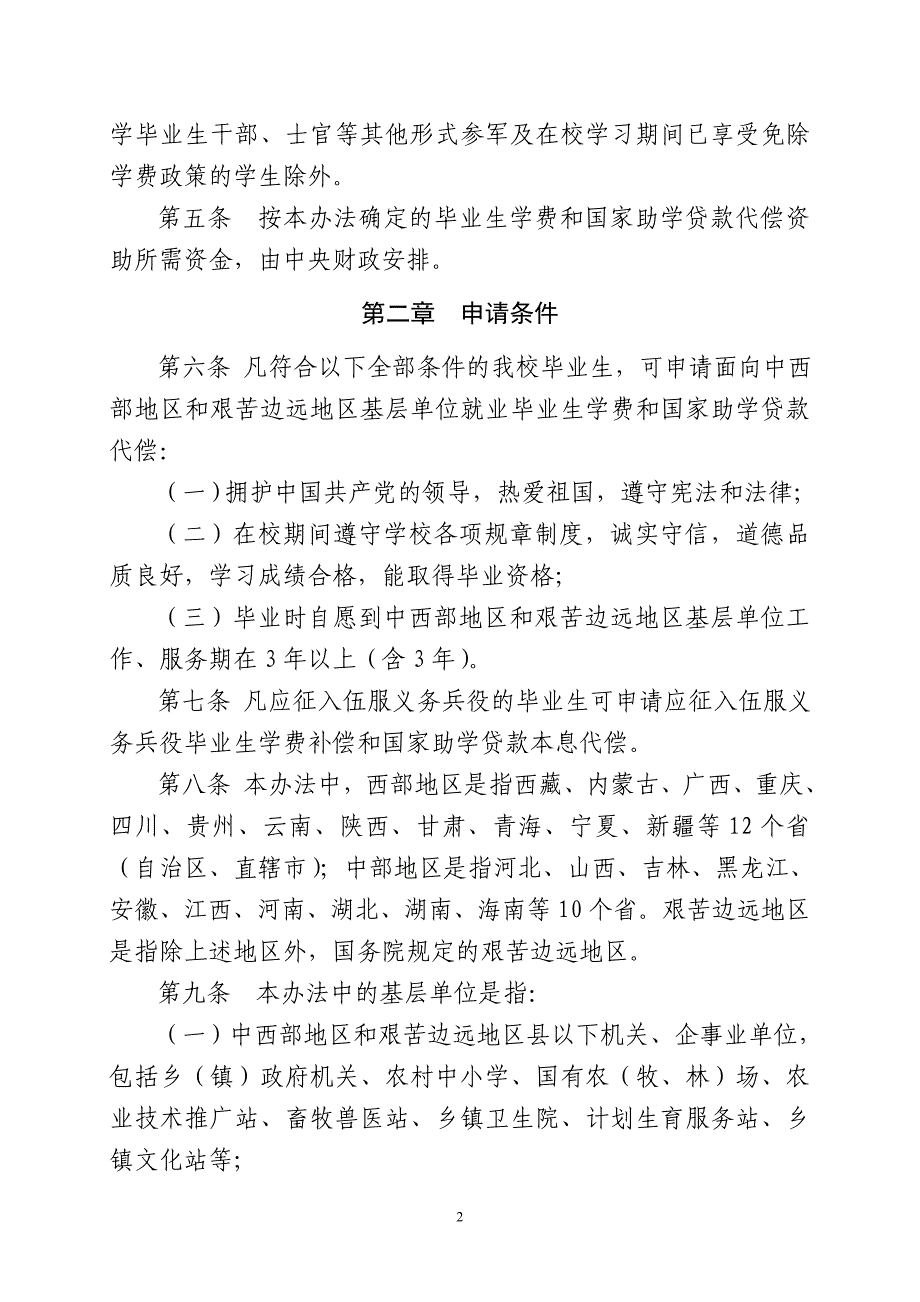 学毕业生干部、士官等其他形式参军及在校学习期间已享受免除
学费政策的学生除外。
第五条　按本办法确定的毕业生学费和国家助学贷款代偿资
助所需资金，由中央财政安排。
第二章　申请条件
第六条 凡符合以下全部条件的我校毕业生，可申请面向中西
部地区和艰苦边远地区基层单位就业毕业生学费和国家助学贷款
代偿：
（一）拥护中国共产党的领导，热爱祖国，遵守宪法和法律；
（二）在校期间遵守学校各项规章制度，诚实守信，道德品
质良好，学习成绩合格，能取得毕业资格；
（三）毕业时自愿到中西部地区和艰苦边远地区基层单位工
作、服务期在 3 年以上（含 3 年）。
第七条 凡应征入伍服义务兵役的毕业生可申请应征入伍服义
务兵役毕业生学费补偿和国家助学贷款本息代偿。
第八条 本办法中，西部地区是指西藏、内蒙古、广西、重庆、
四川、贵州、云南、陕西、甘肃、青海、宁夏、新疆等 12 个省
（自治区、直辖市）；中部地区是指河北、山西、吉林、黑龙江、
安徽、江西、河南、湖北、湖南、海南等 10 个省。艰苦边远地区
是指除上述地区外，国务院规定的艰苦边远地区。
第九条　本办法中的基层单位是指：
（一）中西部地区和艰苦边远地区县以下机关、企事业单位，
包括乡（镇）政府机关、农村中小学、国有农（牧、林）场、农
业技术推广站、畜牧兽医站、乡镇卫生院、计划生育服务站、乡
镇文化站等；
2